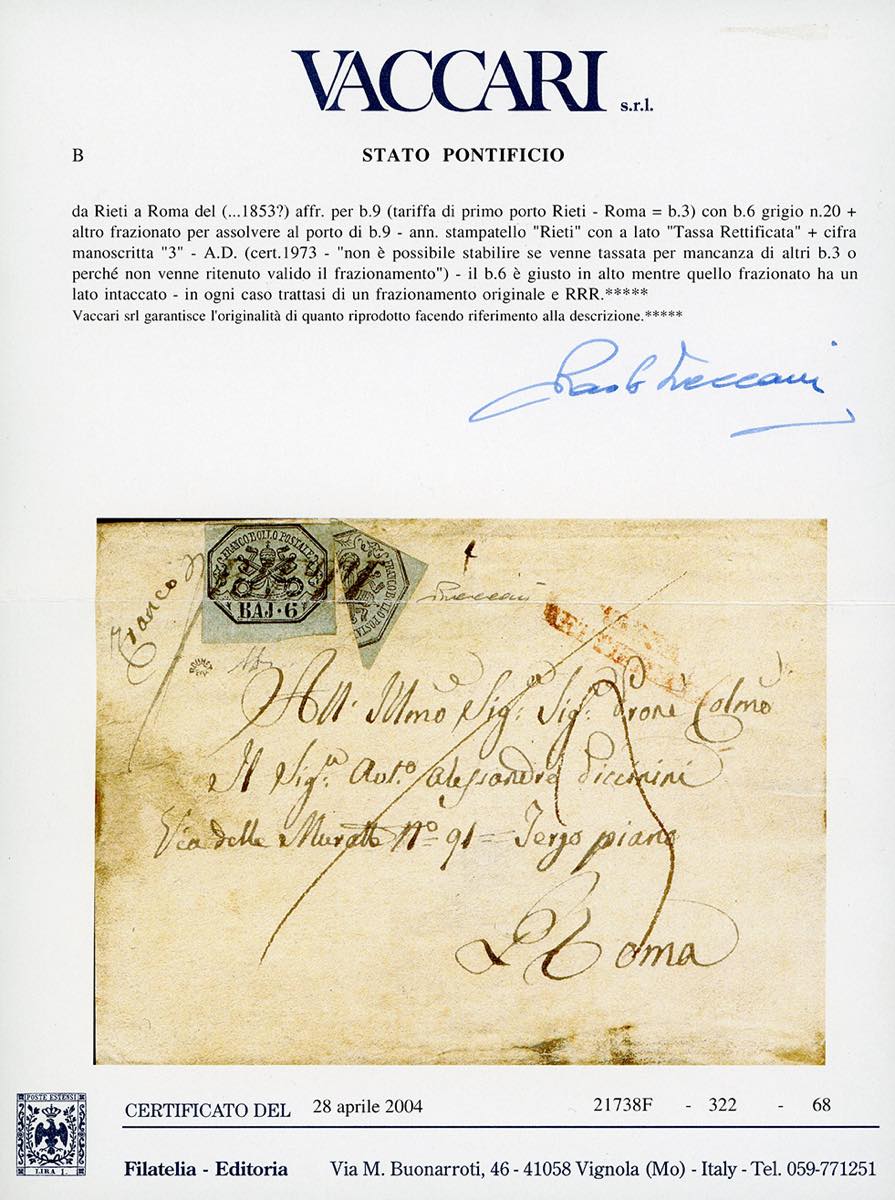 VACCARI s.r.l.
B STATO PONTIFICIO
da Rieti a Roma del (...1853?) affr. per b.9 (tariffa di primo porto Rieti - Roma = b.3) con b.6 grigio n.20 +
altro frazionato per assolvere al porto di b.9 - ann. stampatello "Rieti" con a lato "Tassa Rettificata" + cifra
manoscritta "3" - A.D. (cert.1973 - "non è possibile stabilire se venne tassata per mancanza di altri b.3 o
perché non venne ritenuto valido il frazionamento") - il b.6 è giusto in alto mentre quello frazionato ha un
lato intaccato - in ogni caso trattasi di un frazionamento originale e RRR.*****
Vaccari srl garantisce l'originalità di quanto riprodotto facendo riferimento alla descrizione.*****
Franco
FRANCO BOLLO POSTALE
BAJ·6
FRANCO BOLLO POSTA
All' Illmo Sig: Sig: Prone Colmo
Il Sig: Alessandro Piccinini
Via delle Muratte No 91 = Terzo piano
Roma
POSTE ESTENSI
LIRA 1.
CERTIFICATO DEL 28 aprile 2004 21738F - 322 - 68
Filatelia - Editoria Via M. Buonarroti, 46 - 41058 Vignola (Mo) - Italy - Tel. 059-771251